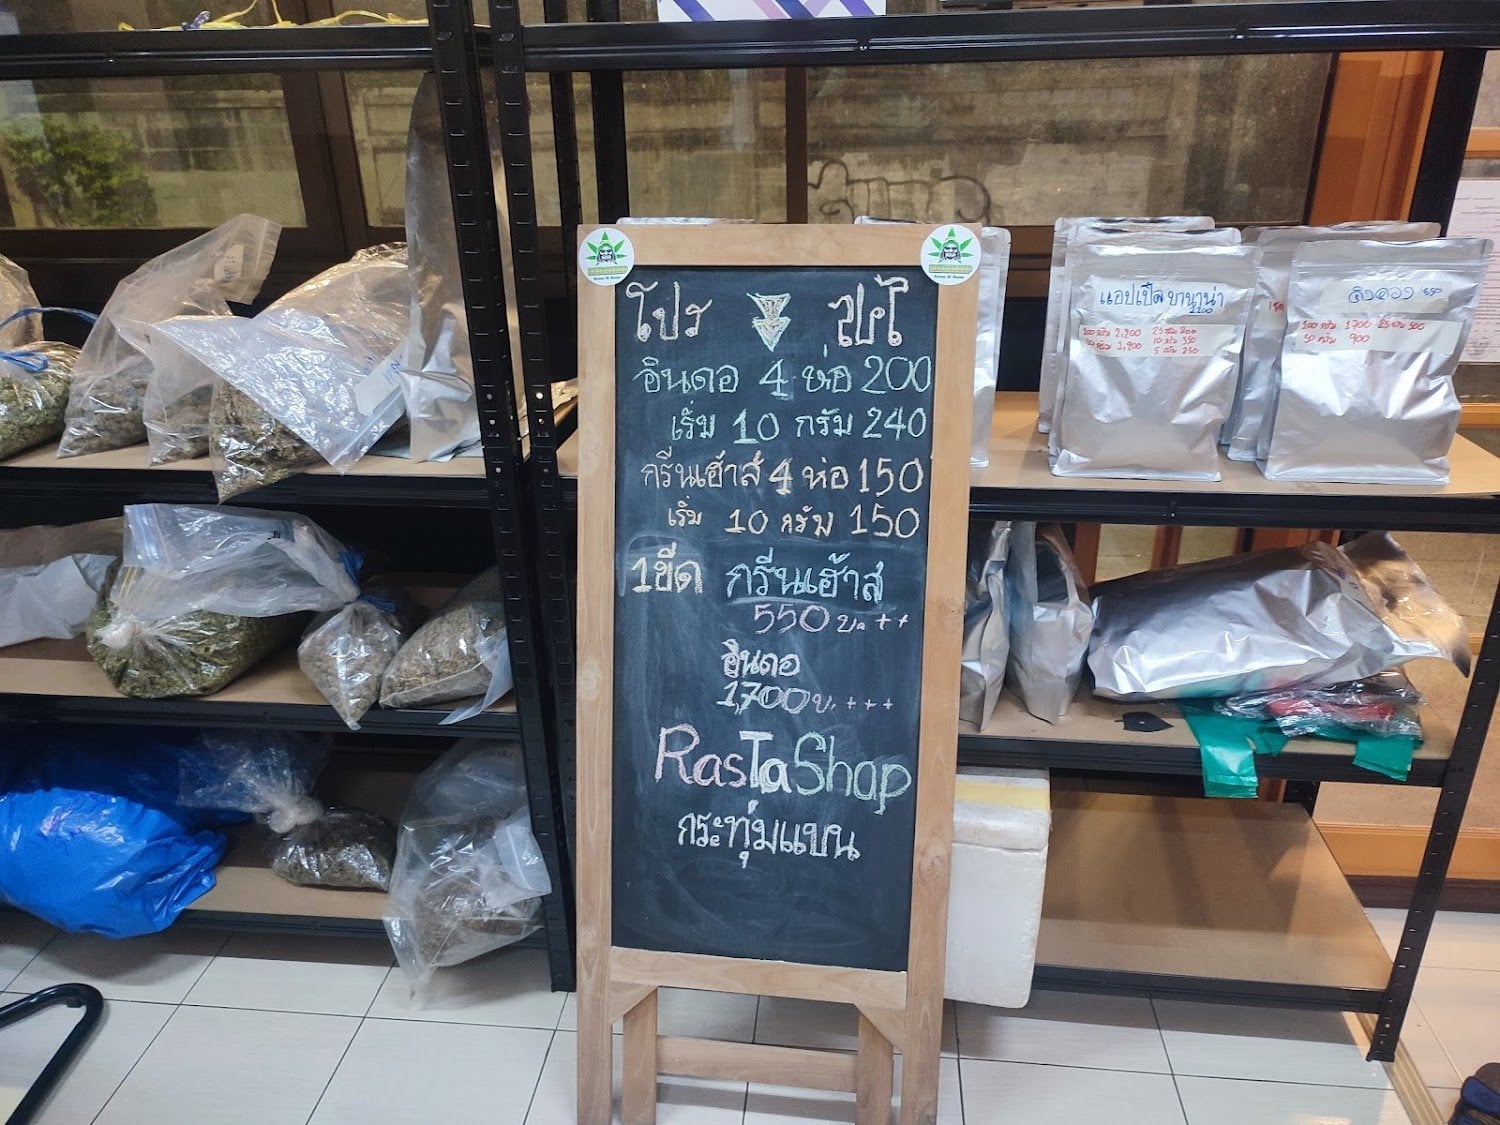 โปร ไฟไ
อินดอ 4 ห่อ 200
เริ่ม 10 กรัม 240
กรีนเฮ้าส์ 4 ห่อ 150
เริ่ม 10 กรัม 150
1ขีด กรีนเฮ้าส
550 บ. ++
อินดอ
1,700บ. +++
RasTaShop
กระทุ่มแบน
แอปเปิ้ลบานาน่า
2200
100 กรัม 2,200 25 กรัม 700
50 กรัม 1,200 10 กรัม 350
5 กรัม 250
100 กรัม 1700 25 กรัม 500
50 กรัม 900